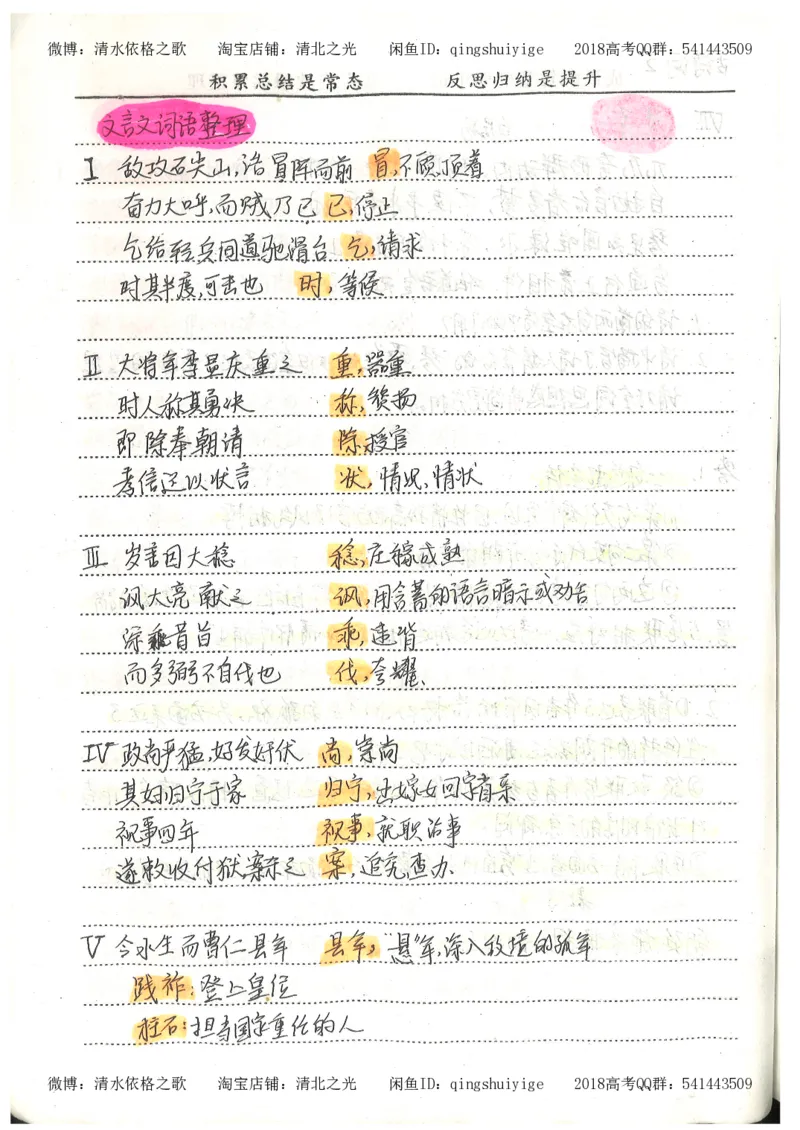 微博：清水依格之歌 淘宝店铺：清北之光 闲鱼ID：qingshuiyige 2018高考QQ群：541443509
积累总结是常态 反思归纳是提升
文言文词语整理
Ⅰ 敌攻石尖山，浩冒阵而前 冒，不顾，顶着
奋力大呼，而贼乃已 已，停止
乞给轻兵间道驰滑台 乞，请求
时其半度，可击也 时，等候
Ⅱ 大将军李显庆重之 重，器重
时人称其勇决 称，赞扬
即除奉朝请 除，授官
孝信还以状言 状，情况，情状
Ⅲ 岁适因大稔 稔，庄稼成熟
讽大亮献之 讽，用含蓄的语言暗示或劝告
深乖昔旨 乖，违背
而多弼不自伐也 伐，夸耀
Ⅳ 政尚严猛，好发奸伏 尚，崇尚
其妇归宁于家 归宁，出嫁女回家省亲
视事四年 视事，就职治事
遂敕收付狱案之 案，追究查办
Ⅴ 今水生而曹仁县军 县军，“悬”军，深入敌境的孤军
践祚：登上皇位
柱石：担当国家重任的人
微博：清水依格之歌 淘宝店铺：清北之光 闲鱼ID：qingshuiyige 2018高考QQ群：541443509